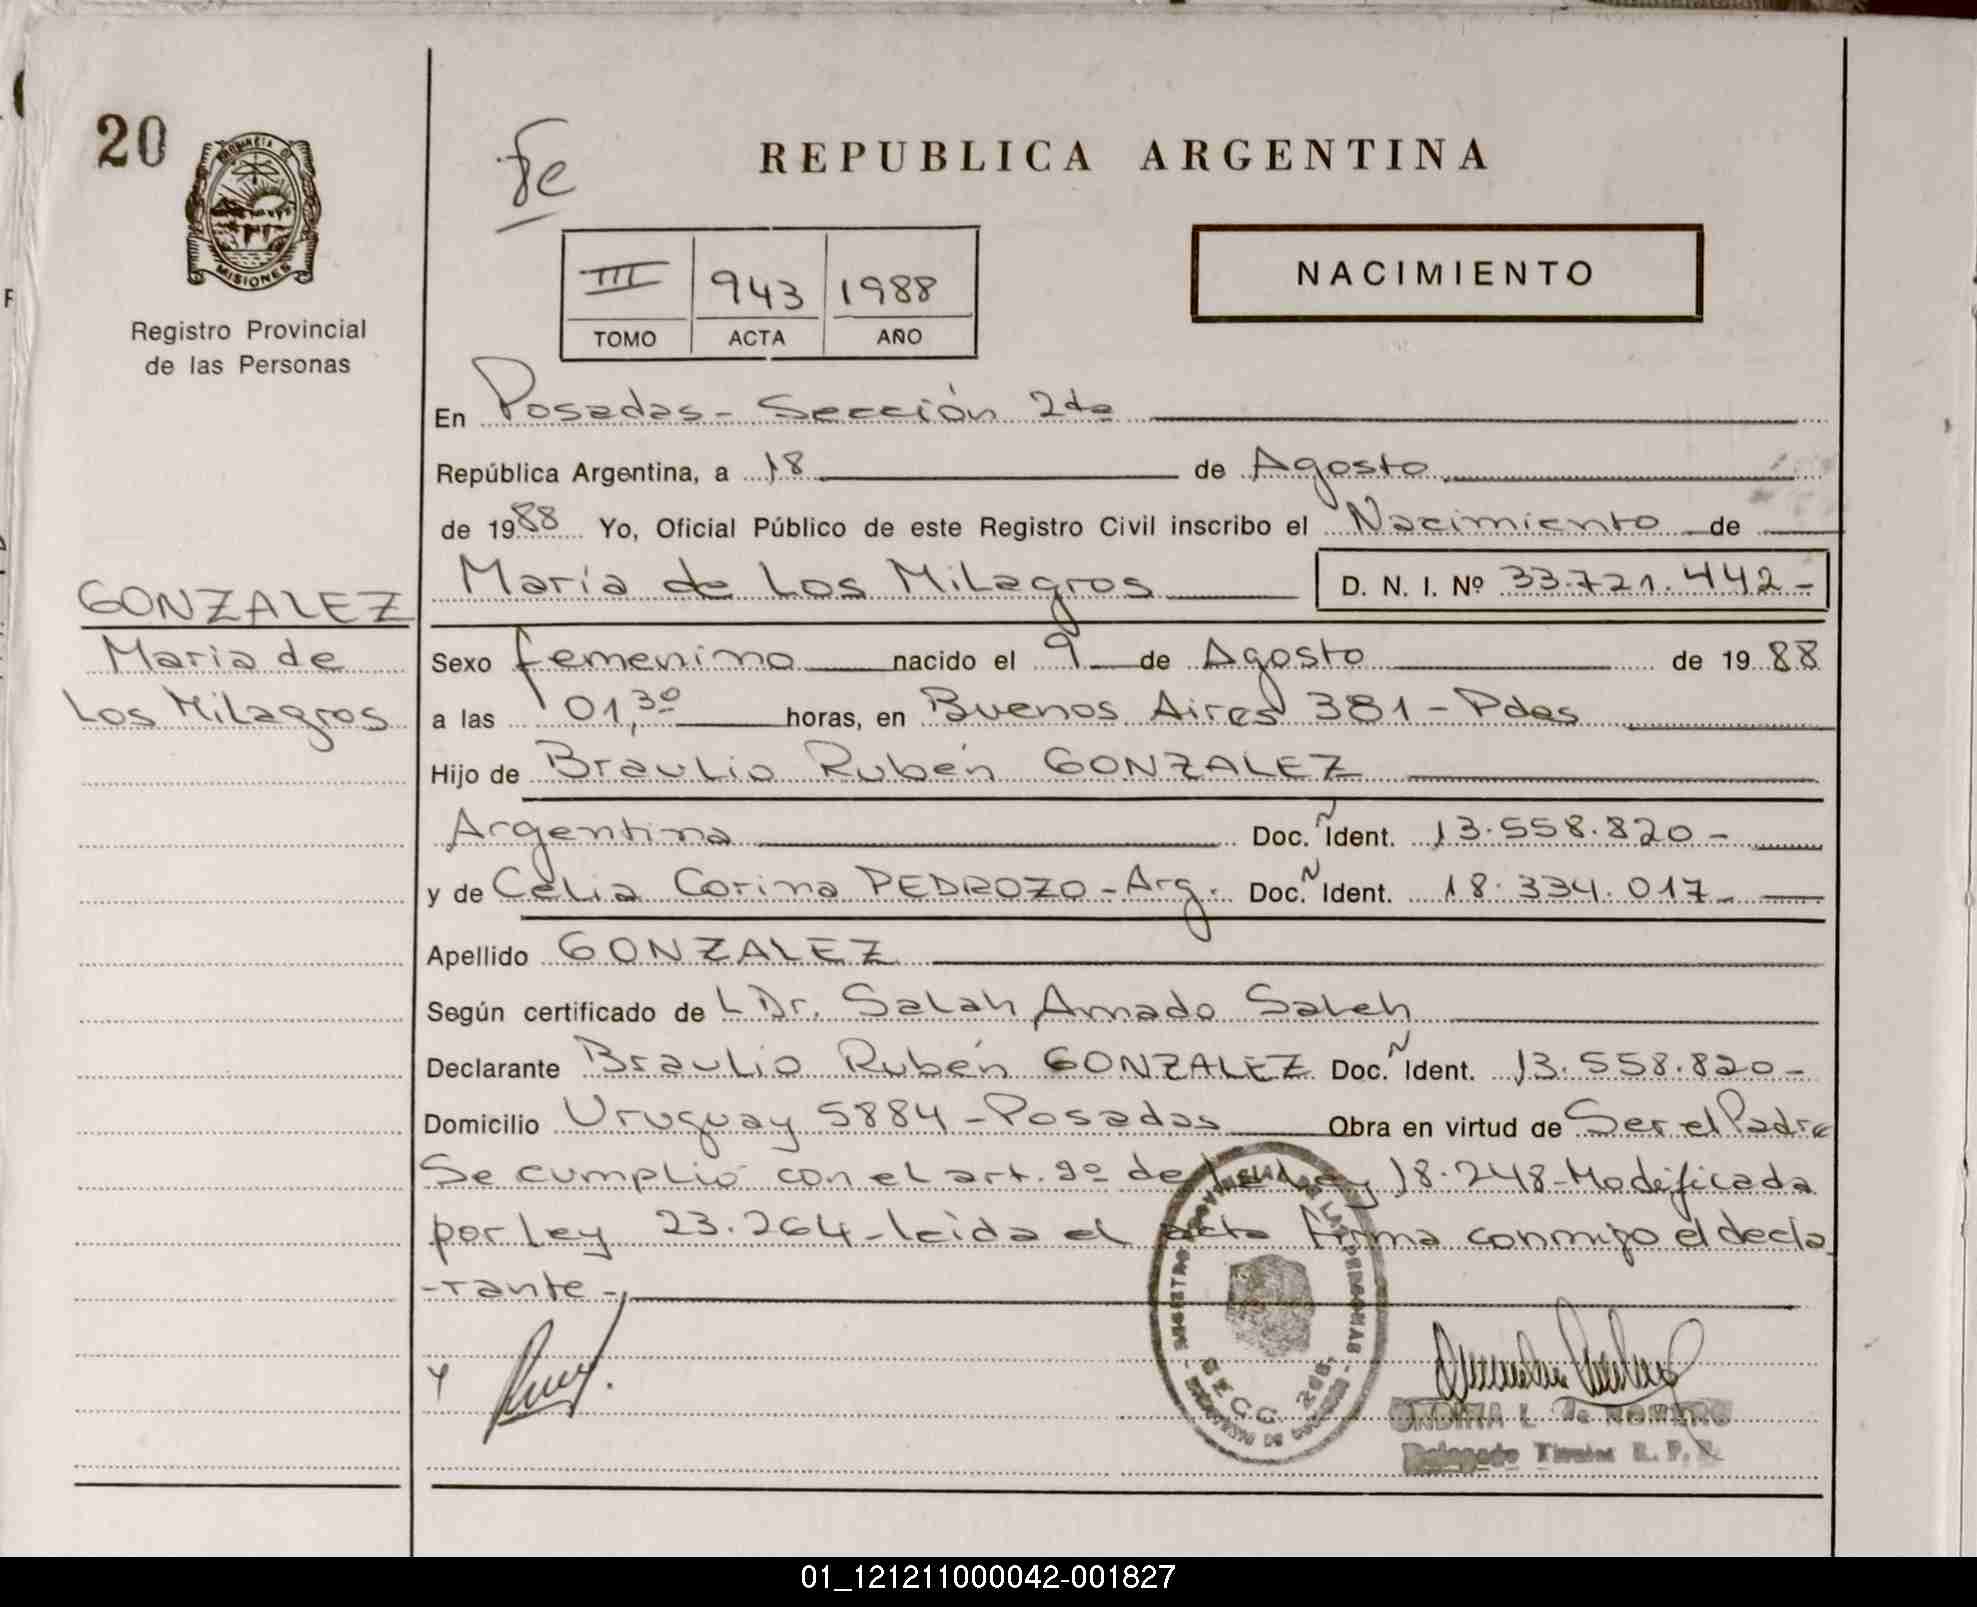 20
PROVINCIA DE
MISIONES
Registro Provincial
de las Personas
GONZALEZ
Maria de
Los Milagros
fe
REPUBLICA ARGENTINA
III 943 1988
TOMO ACTA AÑO
NACIMIENTO
En Posadas - Sección 2da
República Argentina, a 18 de Agosto
de 1988 Yo, Oficial Público de este Registro Civil inscribo el Nacimiento de
María de Los Milagros D. N. I. Nº 33.721.442-
Sexo femenino nacido el 9 de Agosto de 1988
a las 01,30 horas, en Buenos Aires 381 - Pdas
Hijo de Braulio Rubén GONZALEZ
Argentina Doc. Ñ Ident. 13.558.820-
y de Celia Corina PEDROZO - Arg. Doc. Ñ Ident. 18.334.017-
Apellido GONZALEZ
Según certificado de L Dr. Salah Amado Saleh
Declarante Braulio Rubén GONZALEZ Doc. Ñ Ident. 13.558.820-
Domicilio Uruguay 5884 - Posadas Obra en virtud de Ser el Padre
Se cumplió con el art. 9º de la Ley 18.248- Modificada
por Ley 23.264- leida el acta firma conmigo el decla
-rante-
REGISTRO PROVINCIAL DE LAS PERSONAS
SECC. 2da.
ONDINA L. de ROMERO
Delegado Titular R. P. P.
01_121211000042-001827